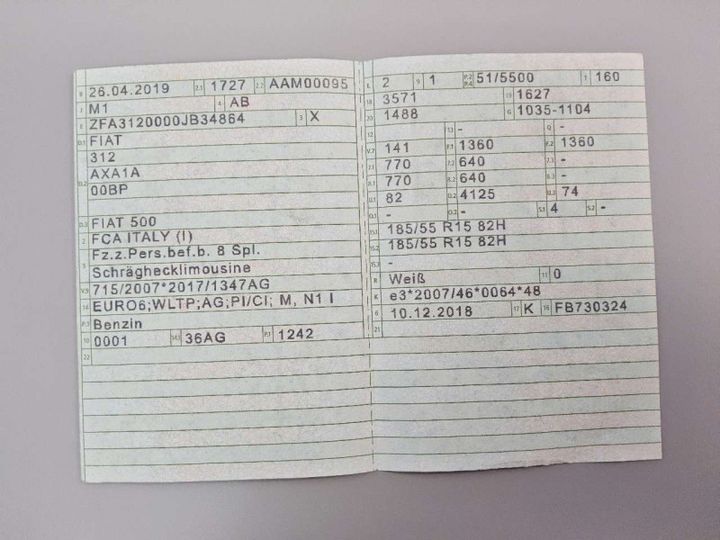 B 26.04.2019 2.1 1727 2.2 AAM00095
J M1 4 AB
E ZFA3120000JB34864 3 X
D.1 FIAT
312
D.2 AXA1A
00BP
D.3 FIAT 500
2 FCA ITALY (I)
5 Fz.z.Pers.bef.b. 8 Spl.
Schräghecklimousine
V.9 715/2007*2017/1347AG
14 EURO6;WLTP;AG;PI/CI; M, N1 I
P.3 Benzin
10 0001 14.1 36AG P.1 1242
22
L 2 9 1 P.2 P.4 51/5500 T 160
18 3571 19 1627
20 1488 G 1035-1104
12 13 - Q -
V.7 141 F.1 1360 F.2 1360
7.1 770 7.2 640 7.3 -
8.1 770 8.2 640 8.3 -
U.1 82 U.2 4125 U.3 74
O.1 - O.2 - S.1 4 S.2 -
15.1 185/55 R15 82H
15.2 185/55 R15 82H
15.3 -
R Weiß 11 0
K e3*2007/46*0064*48
6 10.12.2018 17 K 16 FB730324
21